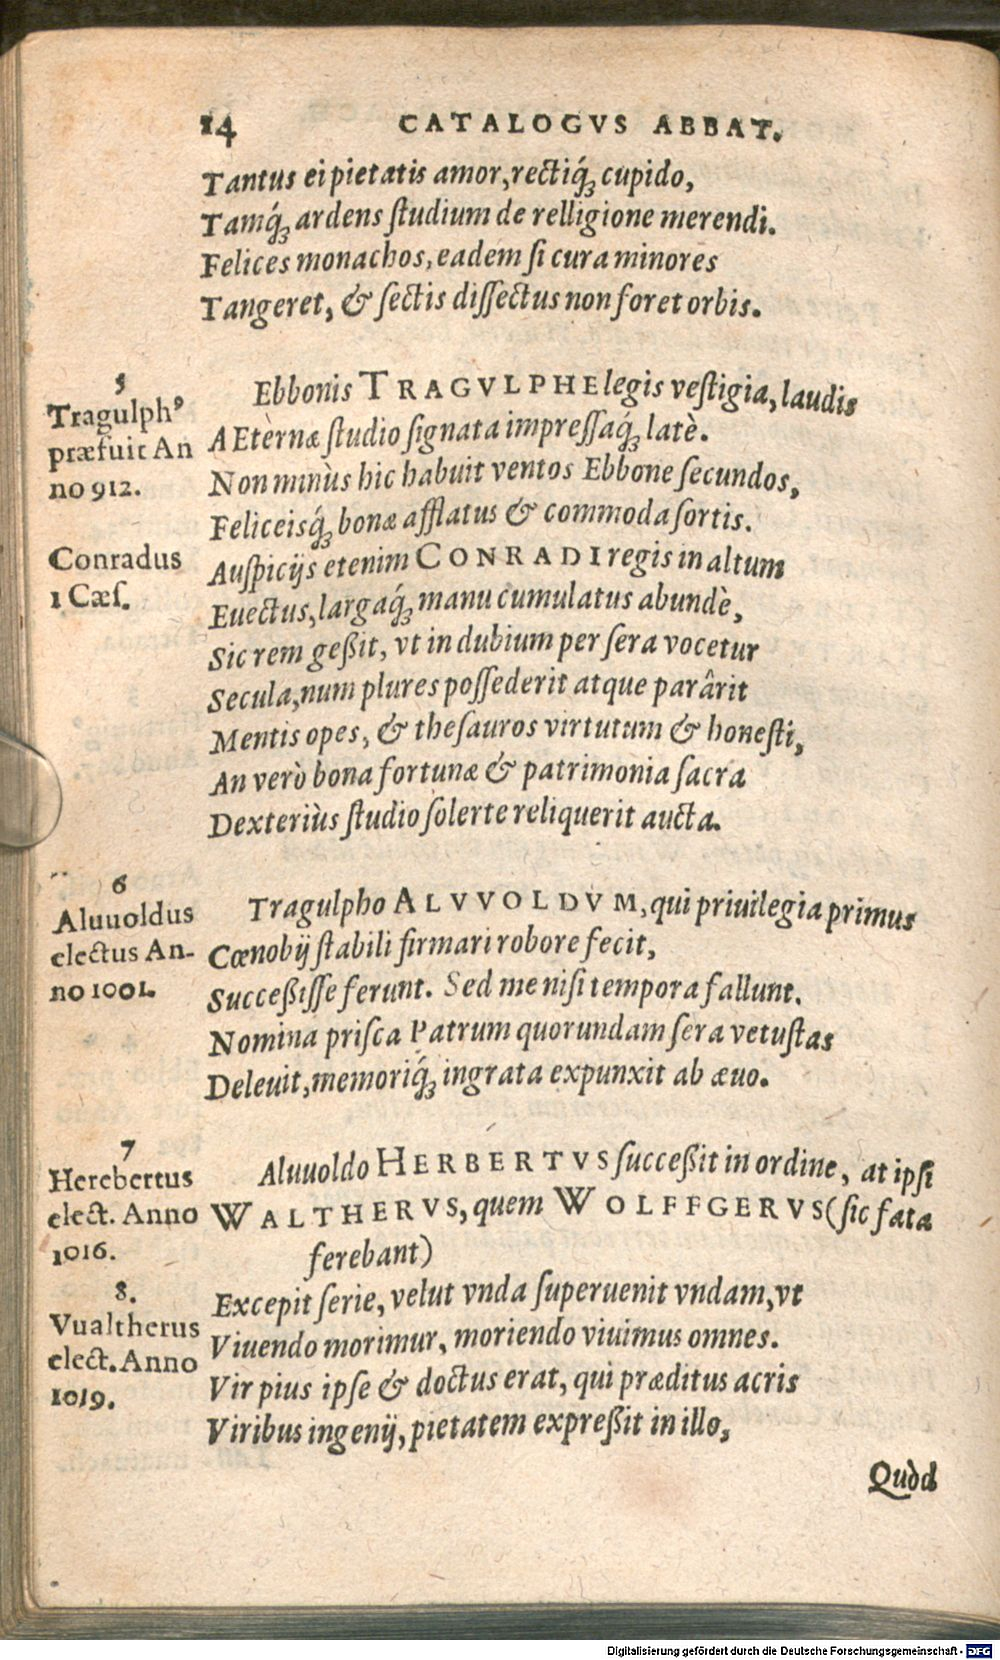 14 CATALOGVS ABBAT.
Tantus ei pietatis amor, rectiq́ꝫ cupido,
Tamq́ꝫ ardens ſtudium de relligione merendi.
Felices monachos, eadem ſi cura minores
Tangeret, & ſectis diſſectus non foret orbis.
5
Tragulphꝰ
præfuit An
no 912.
Ebbonis TRAGVLPHE legis veſtigia, laudis
AEternæ ſtudio ſignata impreſſaq́ꝫ latè.
Non minùs hic habuit ventos Ebbone ſecundos,
Feliceisq́ꝫ bonæ afflatus & commoda ſortis.
Conradus
1 Cæſ.
Auſpicijs etenim CONRADI regis in altum
Euectus, largaq́ꝫ manu cumulatus abundè,
Sic rem geßit, vt in dubium per ſera vocetur
Secula, num plures poſſederit atque parârit
Mentis opes, & theſauros virtutum & honeſti,
An verò bona fortunæ & patrimonia ſacra
Dexteriùs ſtudio ſolerte reliquerit aucta.
6
Aluuoldus
electus An-
no 1001.
Tragulpho ALVVOLDVM, qui priuilegia primus
Cœnobij ſtabili firmari robore fecit,
Succeßiſſe ferunt. Sed me niſi tempora fallunt.
Nomina priſca Patrum quorundam ſera vetuſtas
Deleuit, memoriq́ꝫ ingrata expunxit ab æuo.
7
Herebertus
elect. Anno
1016.
Aluuoldo HERBERTVS ſucceßit in ordine, at ipſi
WALTHERVS, quem WOLFFGERVS (ſic fata
ferebant)
8.
Vualtherus
elect. Anno
1019.
Excepit ſerie, velut vnda ſuperuenit vndam, vt
Viuendo morimur, moriendo viuimus omnes.
Vir pius ipſe & doctus erat, qui præditus acris
Viribus ingenij, pietatem expreßit in illo,
Quòd
Digitalisierung gefördert durch die Deutsche Forschungsgemeinschaft - DFG